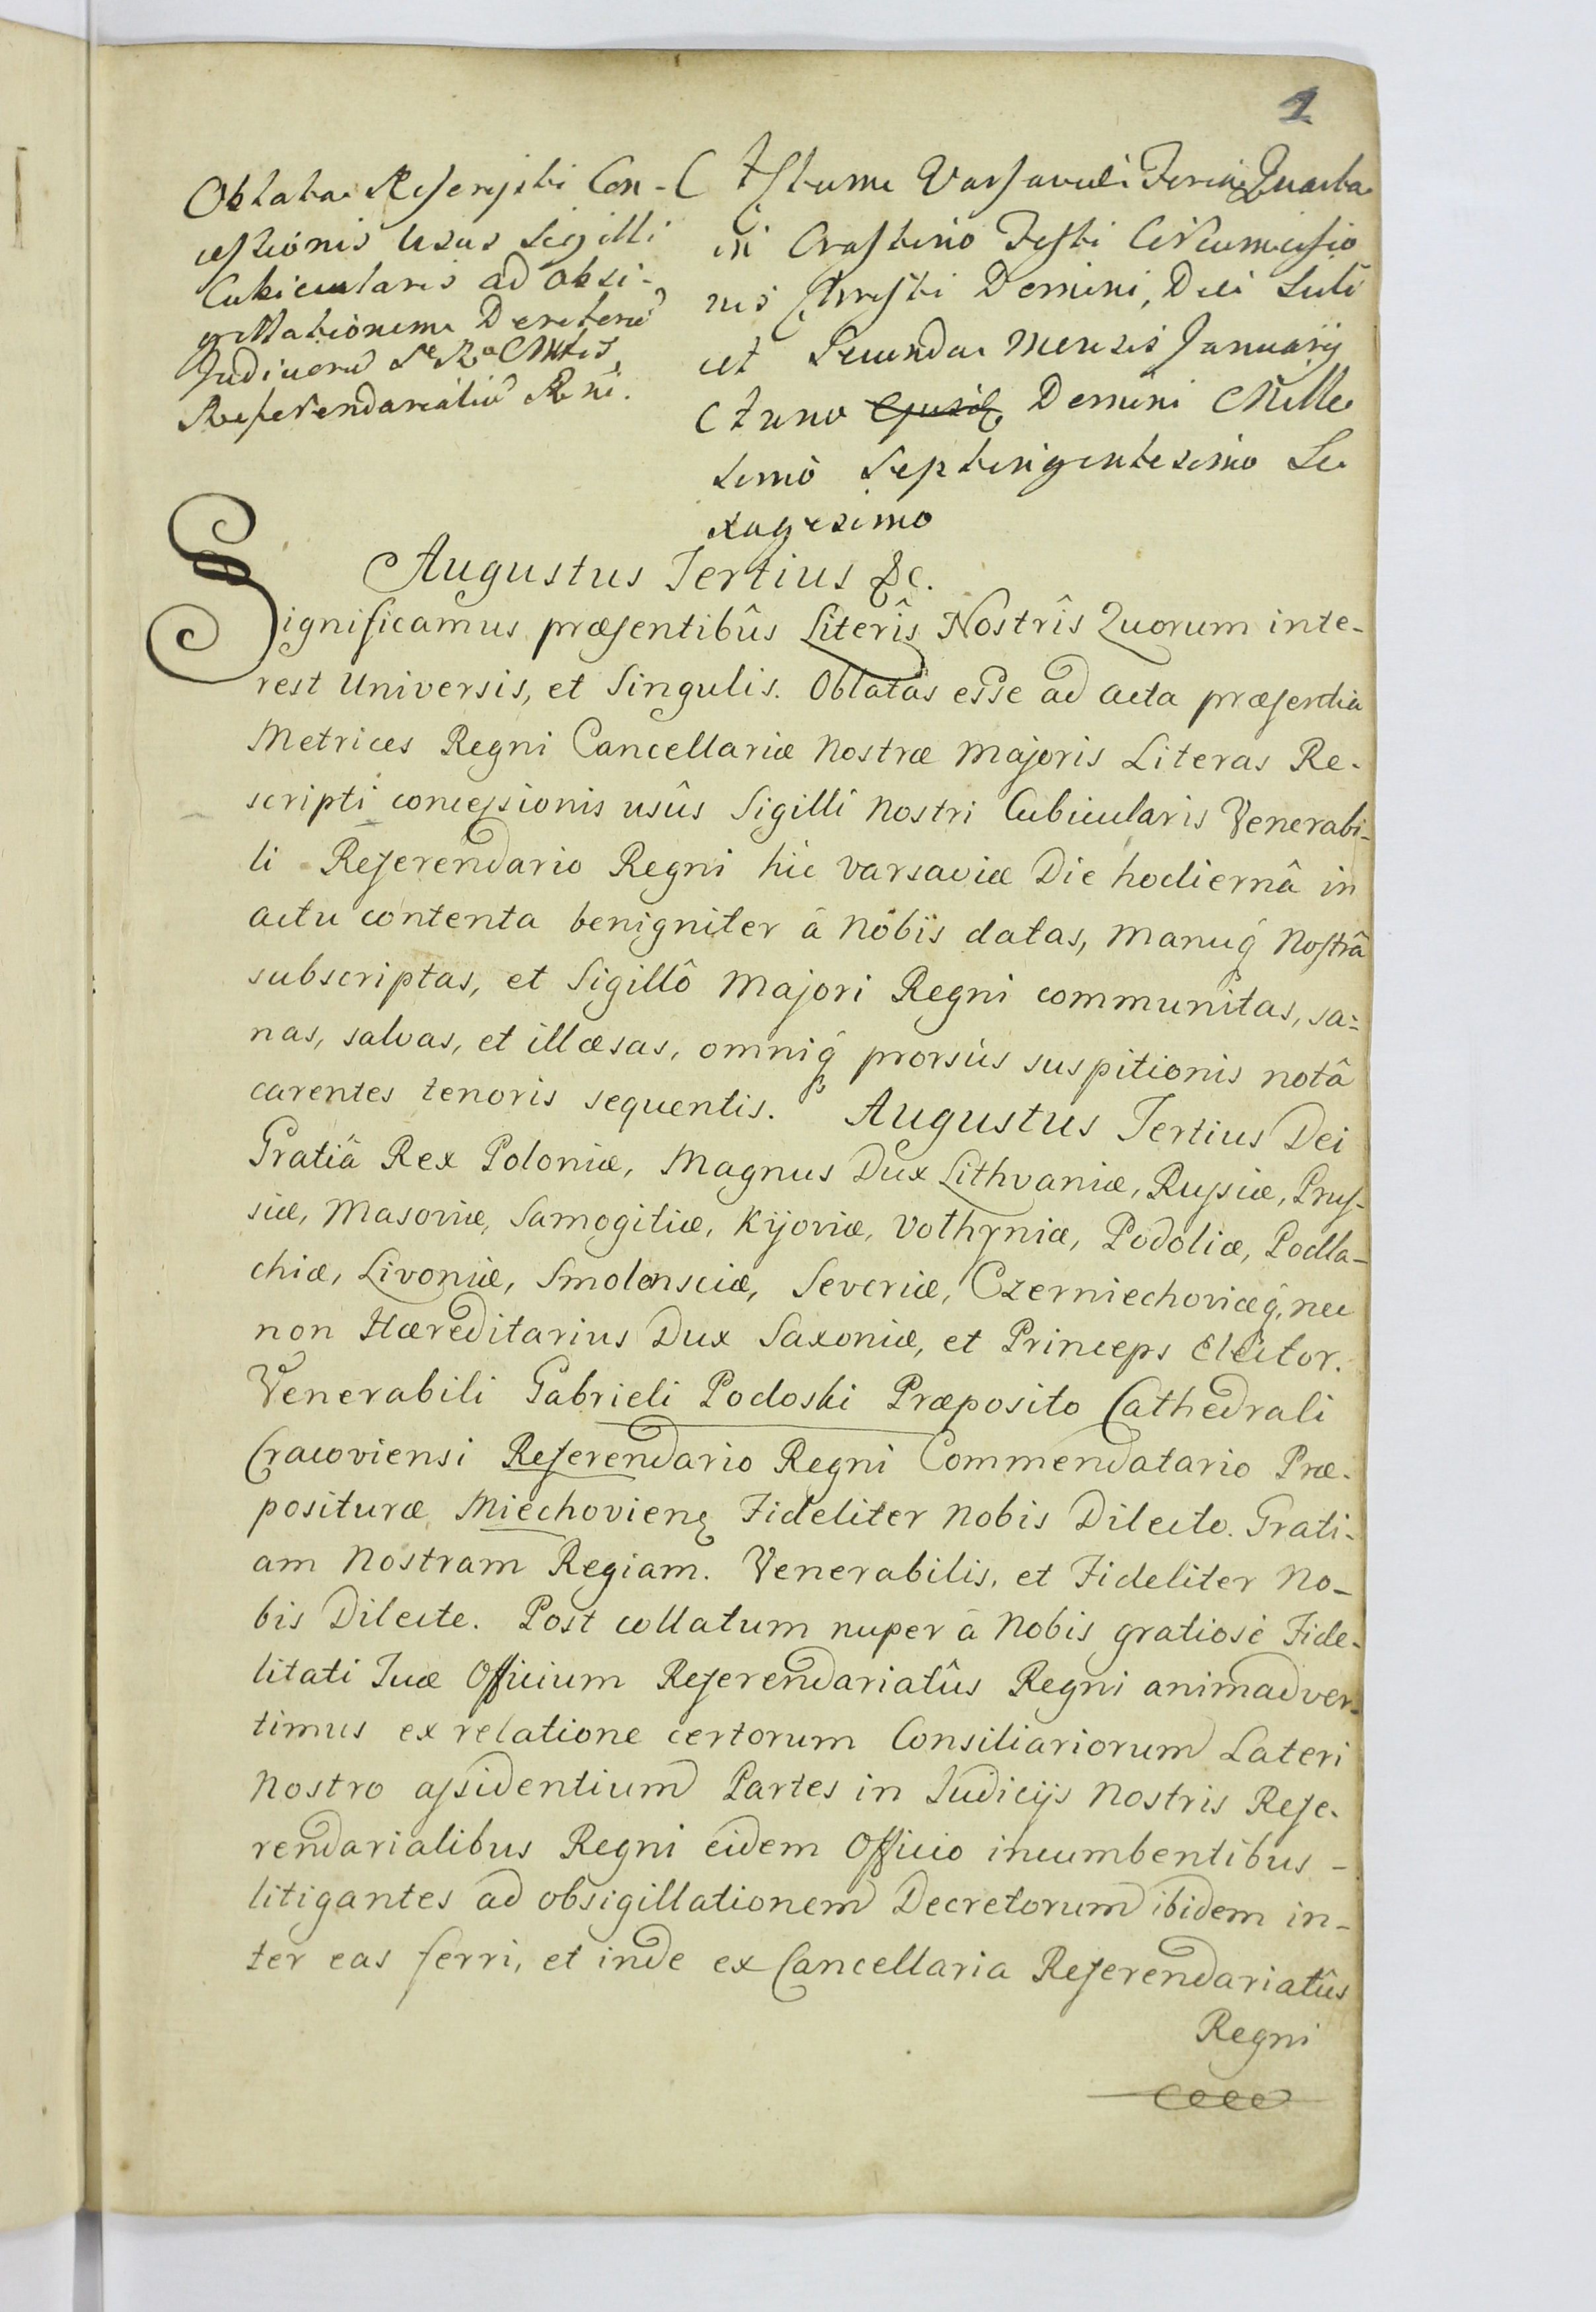 1
Oblata Rescripti Con-
cessionis Usus Sigilli
Cubicularis ad obsi-
gillationem Decretorũ
Judiciorũ Sæ Ræ Mtis
Referendarialiũ Rni.
Actum Varsaviæ Feria Quarta
in Crastino Festi Circumcisio
nis Christi Domini, Diei Scili
cet Secunda Mensis Januarij
Anno Domini Mille
simo Septingentesimo Se
xagesimo
Augustus Tertius &c.
Significamus præsentibûs Literîs Nostrîs Quorum inte-
rest Universis, et Singulis. Oblatas esse ad acta præsentia
Metrices Regni Cancellariæ Nostræ Majoris Literas Re-
scripti concessionis usûs Sigilli Nostri Cubicularis Venerabi-
li Referendario Regni hic Varsaviæ Die hodiernâ in
actu contenta benigniter â Nobis datas, Manuq́ Nostrâ
subscriptas, et Sigillô Majori Regni communitas, sa=
nas, salvas, et illæsas, omniq́ prorsùs suspitionis notâ
carentes tenoris sequentis. Augustus Tertius Dei
Gratiâ Rex Poloniæ, Magnus Dux Lithvaniæ, Russiæ, Prus-
siæ, Masoviæ, Samogitiæ, Kijoviæ, Volhyniæ, Podoliæ, Podla-
chiæ, Livoniæ, Smolensciæ, Severiæ, Czerniechoviæq́, nec
non Hæreditarius Dux Saxoniæ, et Princeps Elector.
Venerabili Gabrieli Podoski Præposito Cathedrali
Cracoviensi Referendario Regni Commendatario Præ-
posituræ Miechovienȩ Fideliter Nobis Dilecto. Grati-
am Nostram Regiam. Venerabilis, et Fideliter No-
bis Dilecte. Post collatum nuper â Nobis gratiosè Fide-
litati Tuæ Officium Referendariatûs Regni animadver-
timus ex relatione certorum Consiliariorum Lateri
Nostro assidentium Partes in Judicijs Nostris Refe-
rendarialibus Regni eidem Officio incumbentibus -
litigantes ad obsigillationem Decretorum ibidem in-
ter eas ferri, et inde ex Cancellaria Referendariatûs
Regni